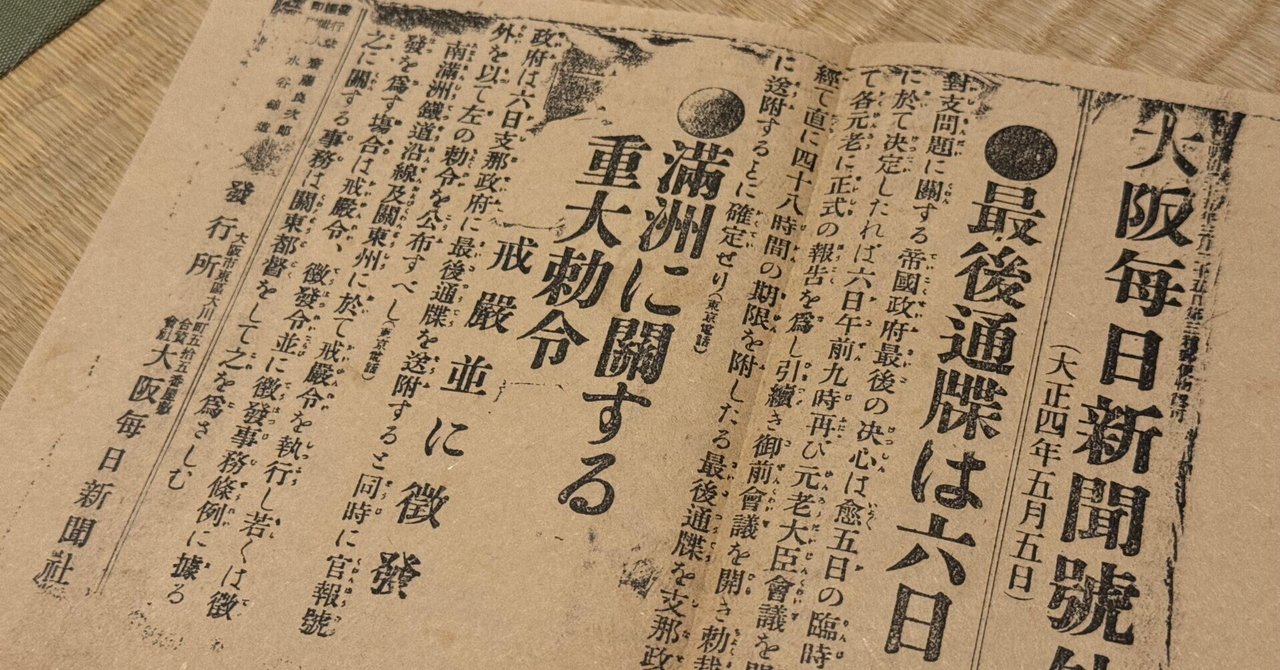 大阪每日新聞號外
(大正四年五月五日)
●最後通牒は六日
對支問題に關する帝國政府最後の决心は愈五日の臨時
に於て決定したれば六日午前九時再び元老大臣會議を開
て各元老に正式の報告を爲し引續き御前會議を開き勅裁
經て直に四十八時間の期限を附したる最後通牒を支那政
に送附するとに確定せり(東京電話)
●滿洲に關する
重大勅令
戒嚴並に徵發
政府は六日支那政府に最後通牒を送附すると同時に官報號
外を以て左の勅令を公布すべし(東京電話)
南滿洲鐵道沿線及關東州に於て戒嚴令を執行し若くは徵
發を爲す塲合は戒嚴令、徵發令並に徵發事務條例に據る
之に關する事務は關東都督をして之を爲さしむ
發行所
大阪市東區大川町五拾五番屋敷
合資會社大阪每日新聞社